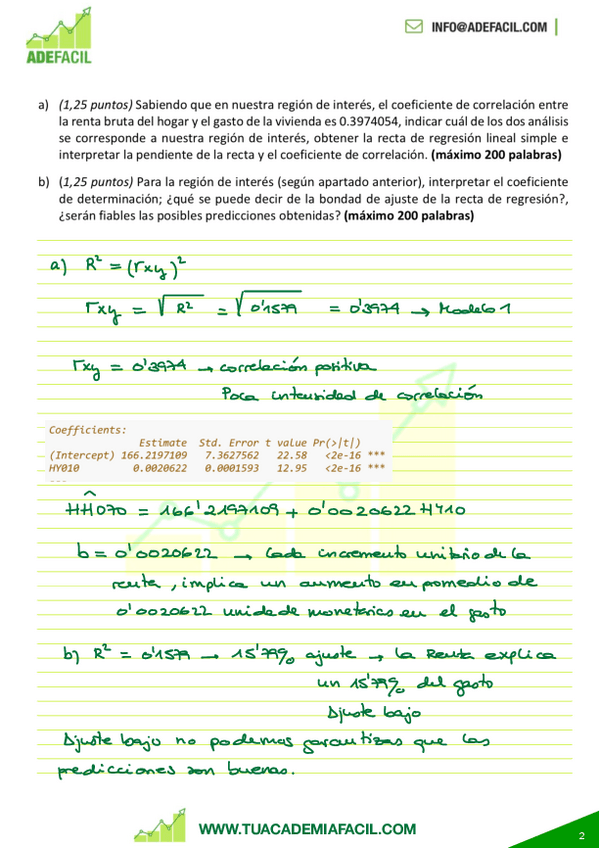 ADEFACIL
INFO@ADEFACIL.COM
a) (1,25 puntos) Sabiendo que en nuestra región de interés, el coeficiente de correlación entre
la renta bruta del hogar y el gasto de la vivienda es 0.3974054, indicar cuál de los dos análisis
se corresponde a nuestra región de interés, obtener la recta de regresión lineal simple e
interpretar la pendiente de la recta y el coeficiente de correlación. (máximo 200 palabras)
b) (1,25 puntos) Para la región de interés (según apartado anterior), interpretar el coeficiente
de determinación; ¿qué se puede decir de la bondad de ajuste de la recta de regresión?,
¿serán fiables las posibles predicciones obtenidas? (máximo 200 palabras)
a) R² = (rxy)²
rxy = √R² = √0'1579 = 0'3974 → Modelo 1
rxy = 0'3974 → correlación positiva
Poca intensidad de correlación
Coefficients:
Estimate Std. Error t value Pr(>|t|)
(Intercept) 166.2197109 7.3627562 22.58 <2e-16 ***
HY010 0.0020622 0.0001593 12.95 <2e-16 ***
---
HH070 = 166'2197109 + 0'0020622 HY10
b = 0'0020622 → Cada incremento unitario de la
renta, implica un aumento en promedio de
0'0020622 unidades monetarias en el gasto
b) R² = 0'1579 → 15'79% ajuste → la Renta explica
un 15'79% del gasto
Ajuste bajo
Ajuste bajo no podemos garantizar que las
predicciones son buenas.
WWW.TUACADEMIAFACIL.COM
2